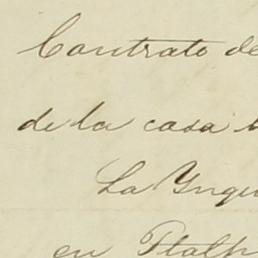 Contrato de
de la casa
La Ynqu
en Tlalp